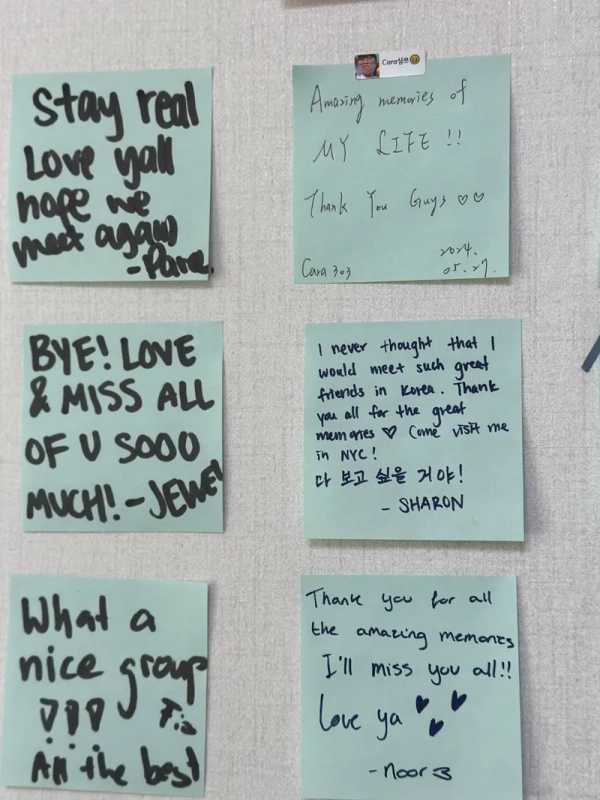 Stay real
Love yall
hope we
meet again
Cara
Amazing memories of
MY LIFE !!
Thank You Guys ♡♡
Cara 303
2024.
05.27.
BYE! LOVE
& MISS ALL
OF U SOOO
MUCH! -JEWEL
I never thought that I
would meet such great
friends in Korea. Thank
you all for the great
memories ♡ Come visit me
in NYC!
다 보고 싶을 거야!
- SHARON
What a
nice group
All the best
Thank you for all
the amazing memories
I'll miss you all!!
Love ya
- Noor